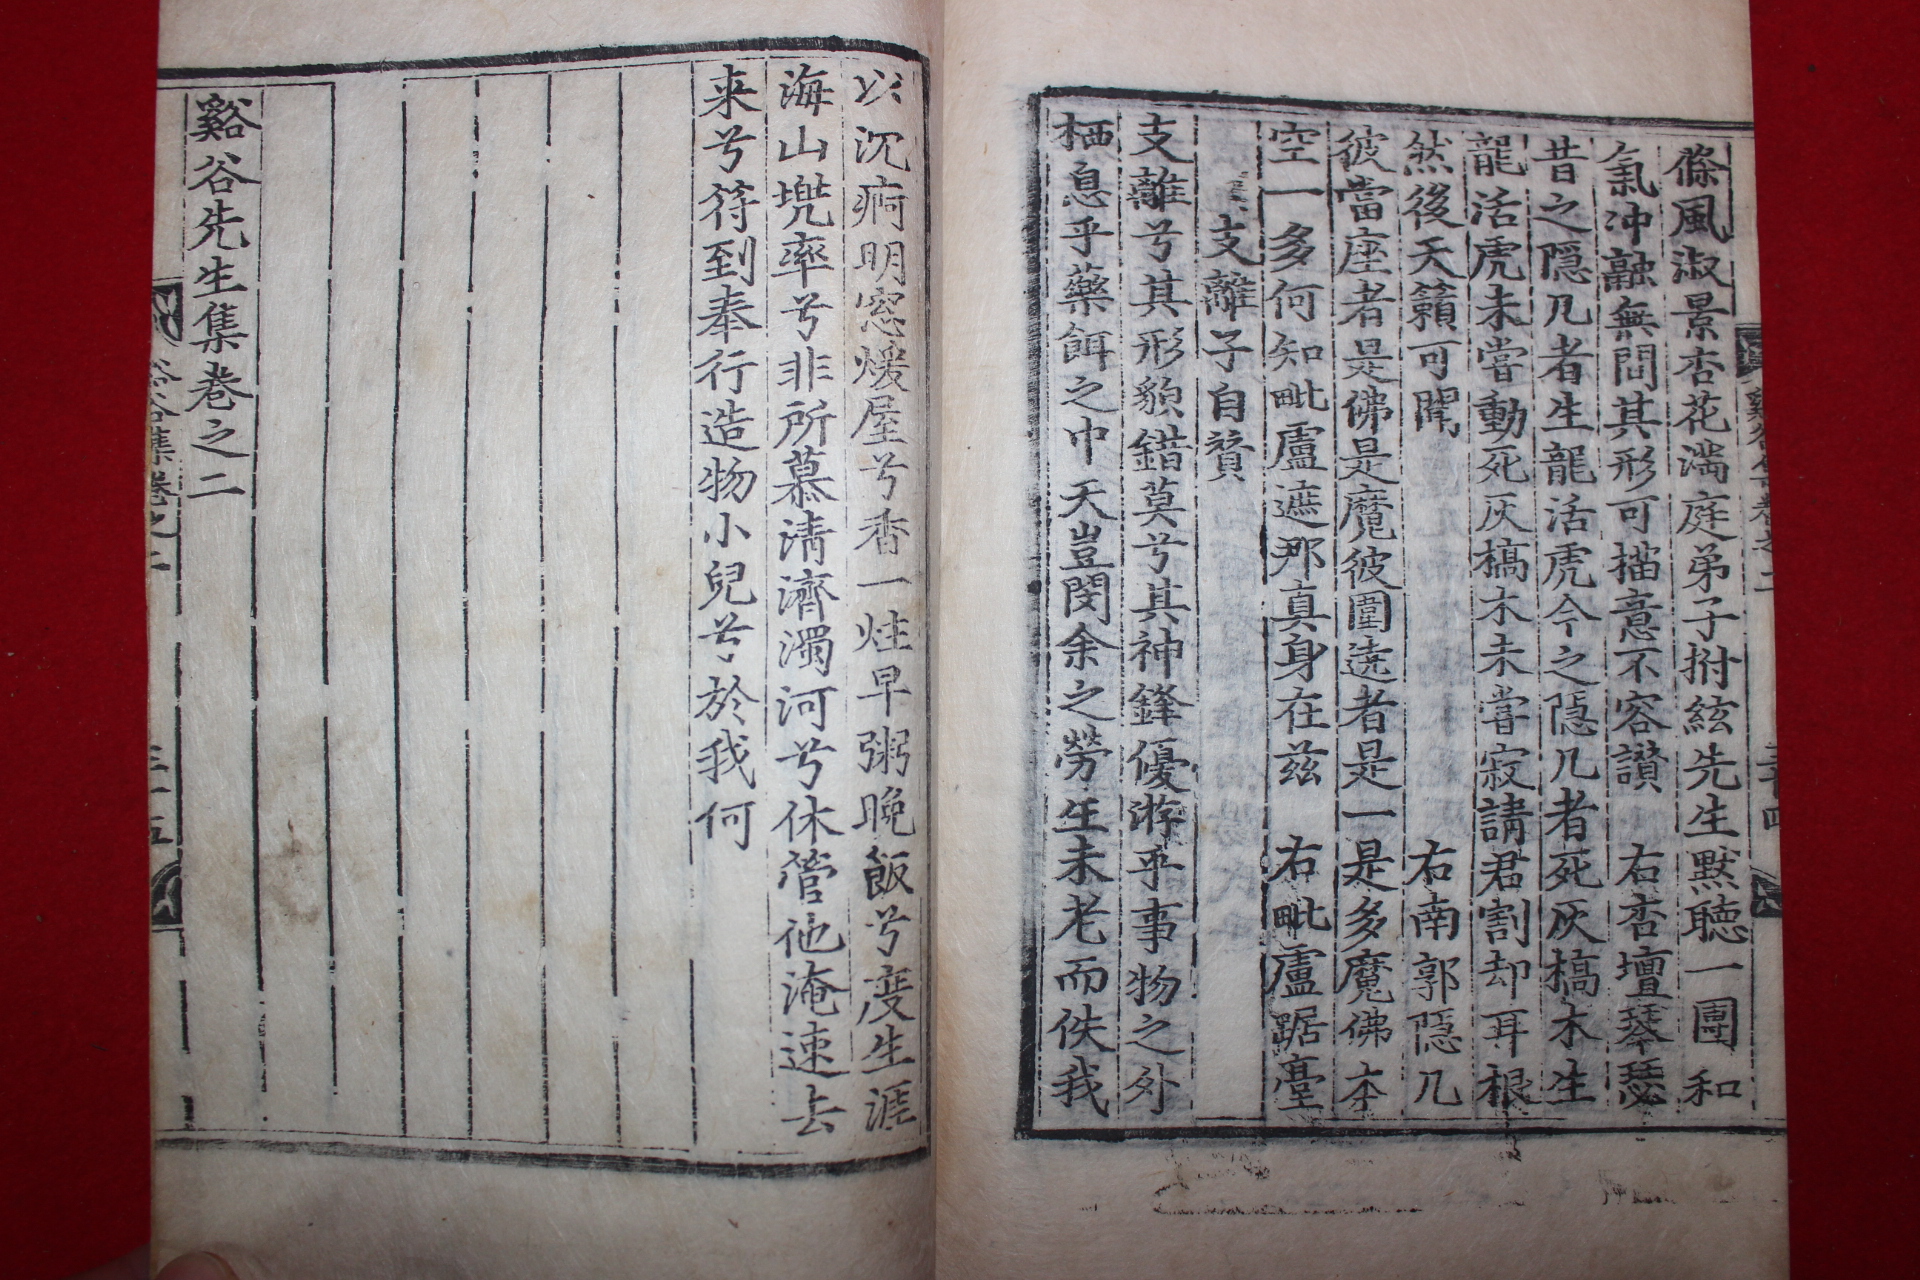 條風淑景杏花滿庭弟子拊絃先生黙聽一團和
氣冲融無間其形可描意不容讃　右杏壇琴瑟
昔之隠几者生龍活虎今之隠几者死灰槁木生
龍活虎未嘗動死灰槁木未嘗寂請君割却耳根
然後天籟可聞　右南郭隠几
彼當座者是佛是魔彼圍遶者是一是多魔佛本
空一多何知毗盧遮那真身在兹　右毗盧踞臺
支離子自賛
支離兮其形貌錯莫兮其神鋒優游乎事物之外
栖息乎藥餌之中天豈閔余之勞生未老而佚我
谿谷集卷之二
三十四
以沉痾明窓煖屋兮香一炷早粥晩飯兮度生涯
海山兠率兮非所慕淸濟濁河兮休管他淹速去
来兮符到奉行造物小兒兮於我何
谿谷先生集卷之二
谿谷集卷之二
三十五